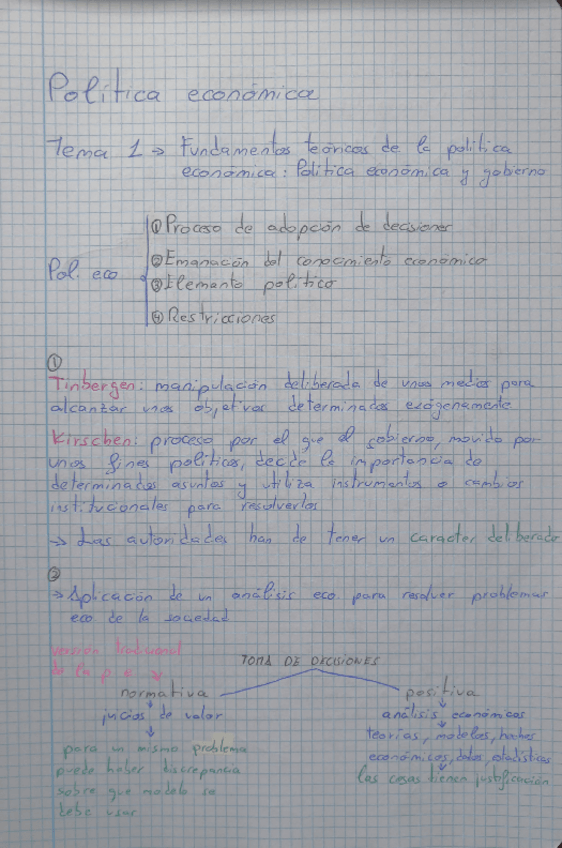 Política económica
Tema 1 → Fundamentos teóricos de la política
económica: Política económica y gobierno
Pol. eco
① Proceso de adopción de decisiones
② Emanación del conocimiento económico
③ Elemento político
④ Restricciones
①
Tinbergen: manipulación deliberada de unos medios para
alcanzar unos objetivos determinados exógenamente
Kirschen: proceso por el que el gobierno, movido por
unos fines políticos, decide la importancia de
determinados asuntos y utiliza instrumentos o cambios
institucionales para resolverlos
→ Las autoridades han de tener un caracter deliberado
②
→ Aplicación de un análisis eco para resolver problemas
eco de la sociedad
versión tradicional
de la p e
TOMA DE DECISIONES
normativa
positiva
juicios de valor
análisis económicos
teorías, modelos, hechos
económicos, datos, estadísticas
las cosas tienen justificación
para un mismo problema
puede haber discrepancia
sobre que modelo se
debe usar